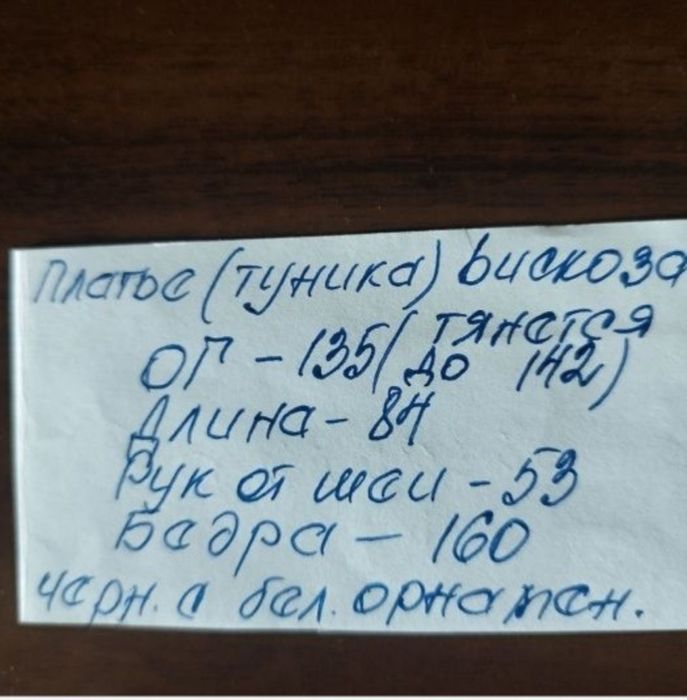 Платье (туника) вискоза
ОГ - 135 (тянется
до 142)
Длина - 84
Рук от шеи - 53
Бедра - 160
черн. с бел. орнамен.